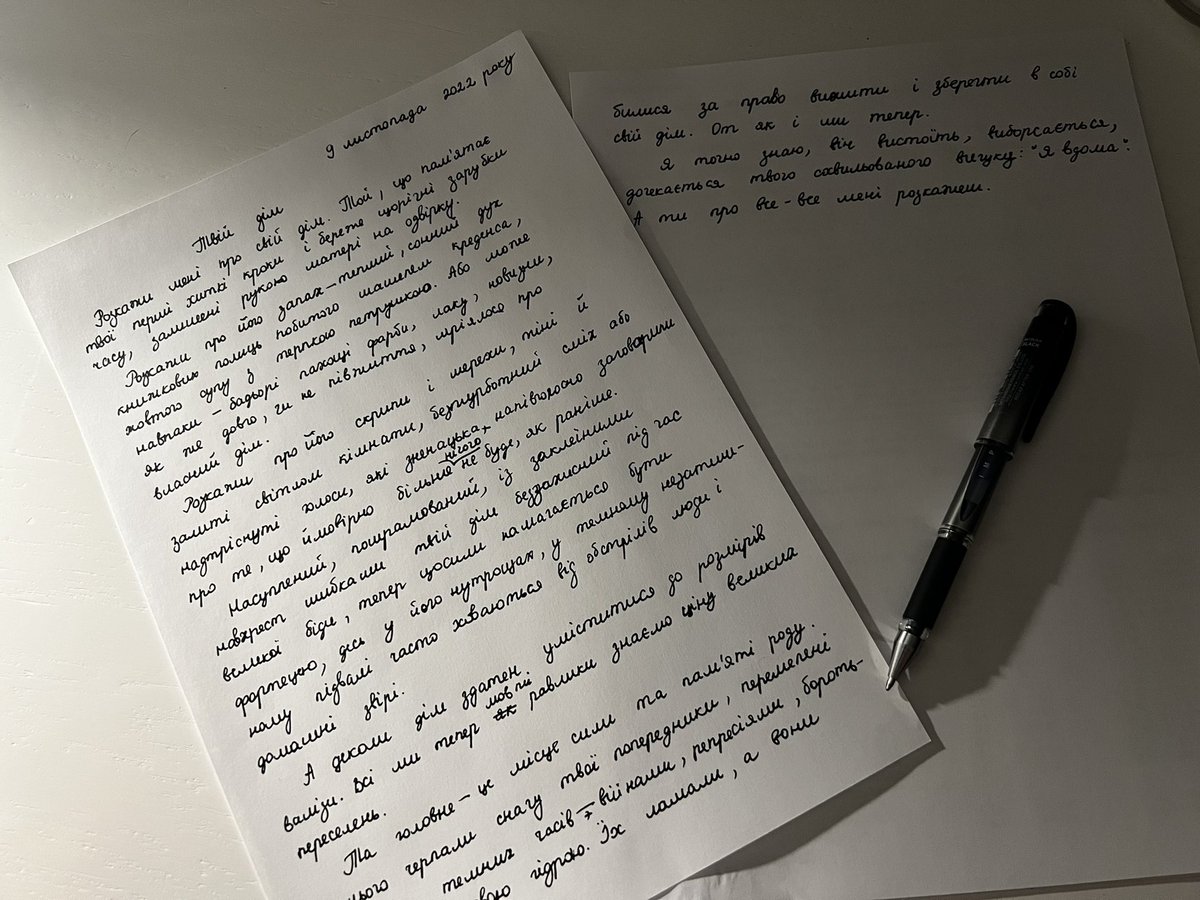 9 листопада 2022 року
Твій дім
Розкажи мені про свій дім. Той, що пам'ятає
твої перші хиткі кроки і береже щорічні зарубки
часу, залишені рукою матері на одвірку.
Розкажи про його запах – теплий, сонний дух
книжкових полиць побитого шашелем креденса,
жовтого супу з терпкою петрушкою. Або може
навпаки – бадьорі пахощі фарби, лаку, новизни,
як же довго, чи не півжиття, мріялося про
власний дім.
Розкажи про його скрипи і шерехи, тіні й
залиті світлом кімнати, безтурботний сміх або
надтріснуті голоси, які зненацька, напівголосно заговорили
про те, що ймовірно більш нічого не буде, як раніше.
Насуплений, пошрамований, із заклеїними
навхрест шибками твій дім беззахисний під час
великої біди, тепер щосили намагається бути
фортецею, десь у його нутрощах, у темному незатиш-
ному підвалі часто ховаються від обстрілів люди і
домашні звірі.
А деколи дім здатен уміститися до розмірів
валізи. Всі ми тепер як мовби равлики знаємо ціну великих
переселень.
Та головне – це місце сили та пам'яті роду.
нього черпали снагу твої попередники, перемелені
темних часів – війнами, репресіями, бороть-
гідрою. Їх ламали, а вони
билися за право вижити і зберегти в собі
свій дім. От як і ми тепер.
Я точно знаю, він вистоїть, виборсається,
дочекається твого схвильованого вигуку: "Я вдома".
А ти про все-все мені розкажеш.